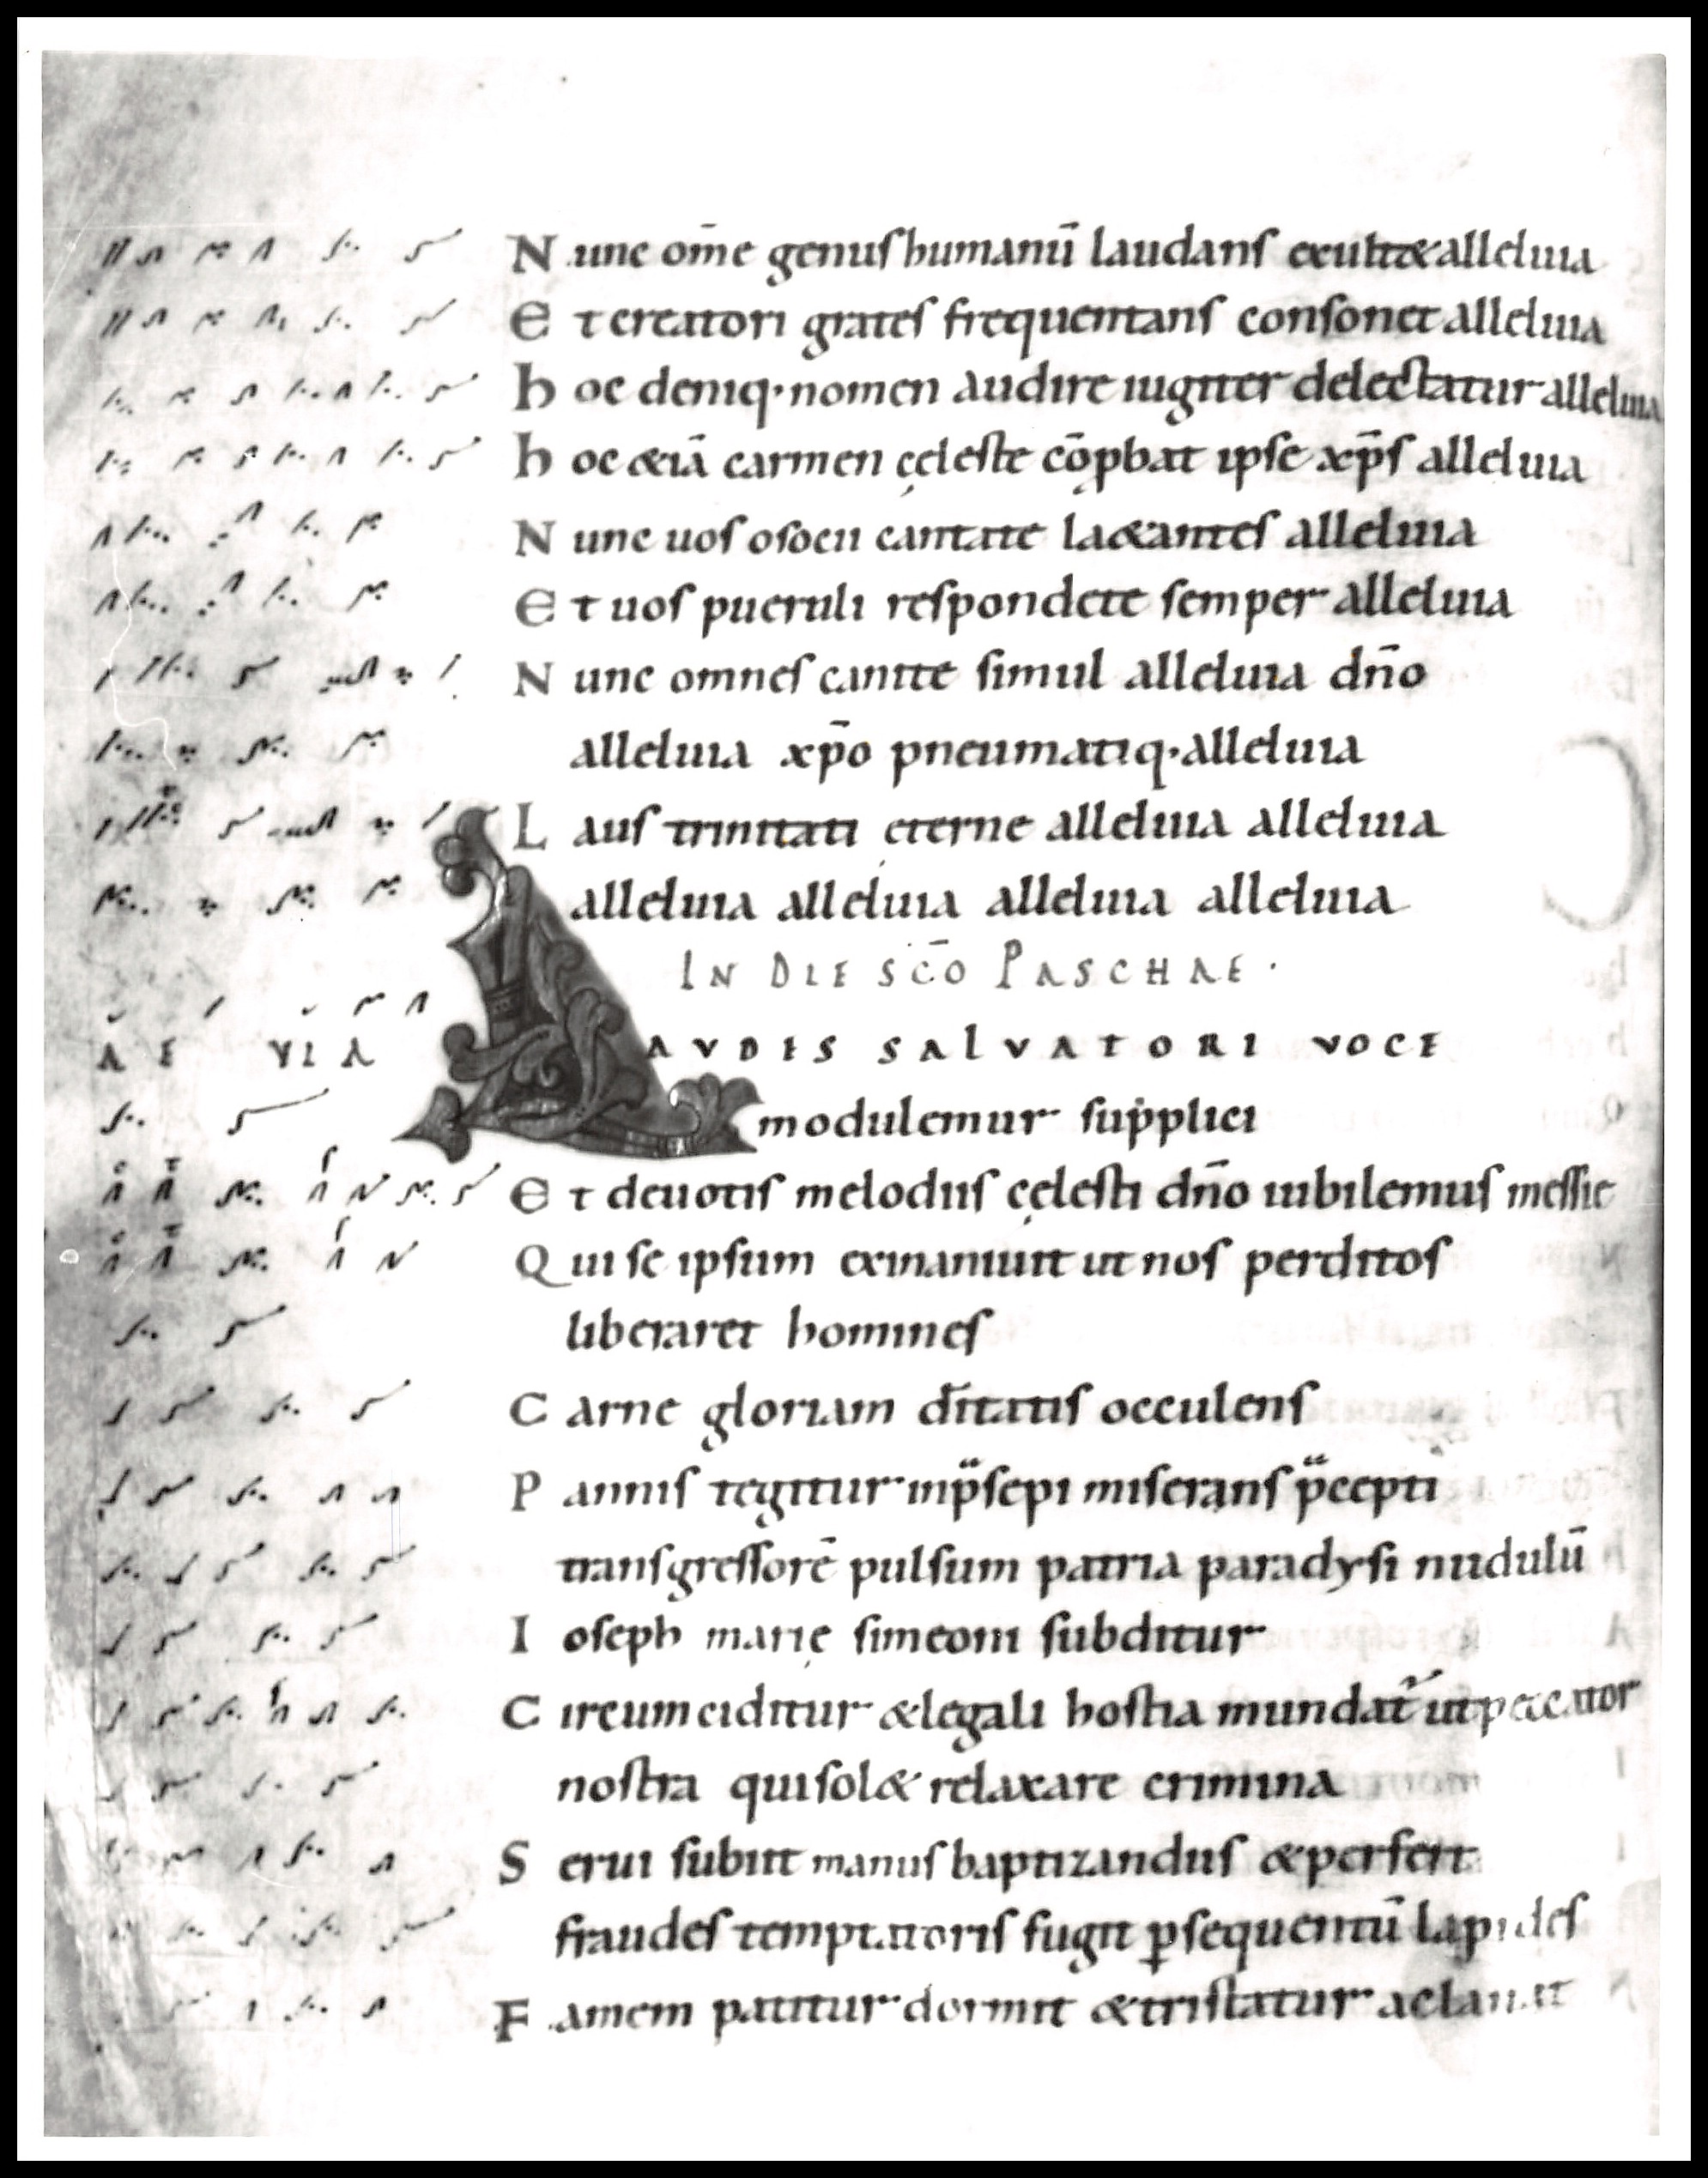 Nunc om̄e genus humanū laudans exult& alleluia
Et creatori grates frequentans consonet alleluia
hoc deniq· nomen audire iugiter delectatur alleluia
hoc &iā carmen cęleste cōpbat ipse xp̄s alleluia
Nunc uos osocii cantate la&antes alleluia
Et uos pueruli respondete semper alleluia
Nunc omnes canite simul alleluia dn̄o
alleluia xp̄o pneumatiq· alleluia
Laus trinitati ęterne alleluia alleluia
alleluia alleluia alleluia alleluia
IN DIE SC̄O PASCHAE·
AE VIA LAVDES SALVATORI VOCE
modulemur supplici
Et deuotis melodiis cęlesti dn̄o iubilemus messie
Qui se ipsum exinaniuit ut nos perditos
liberaret homines
Carne gloriam dītatis occulens
Pannis tegitur inp̈sepi miserans p̈cepti
transgressorē pulsum patria paradysi nudulū
Ioseph marię simeoni subditur
Circumciditur & legali hostia mundat̄ ut peccator
nostra qui sol& relaxare crimina
Serui subiit manus baptizandus & perfert
fraudes temptatoris fugit ꝑsequentū lapides
Famem patitur dormit & tristatur ac lauit